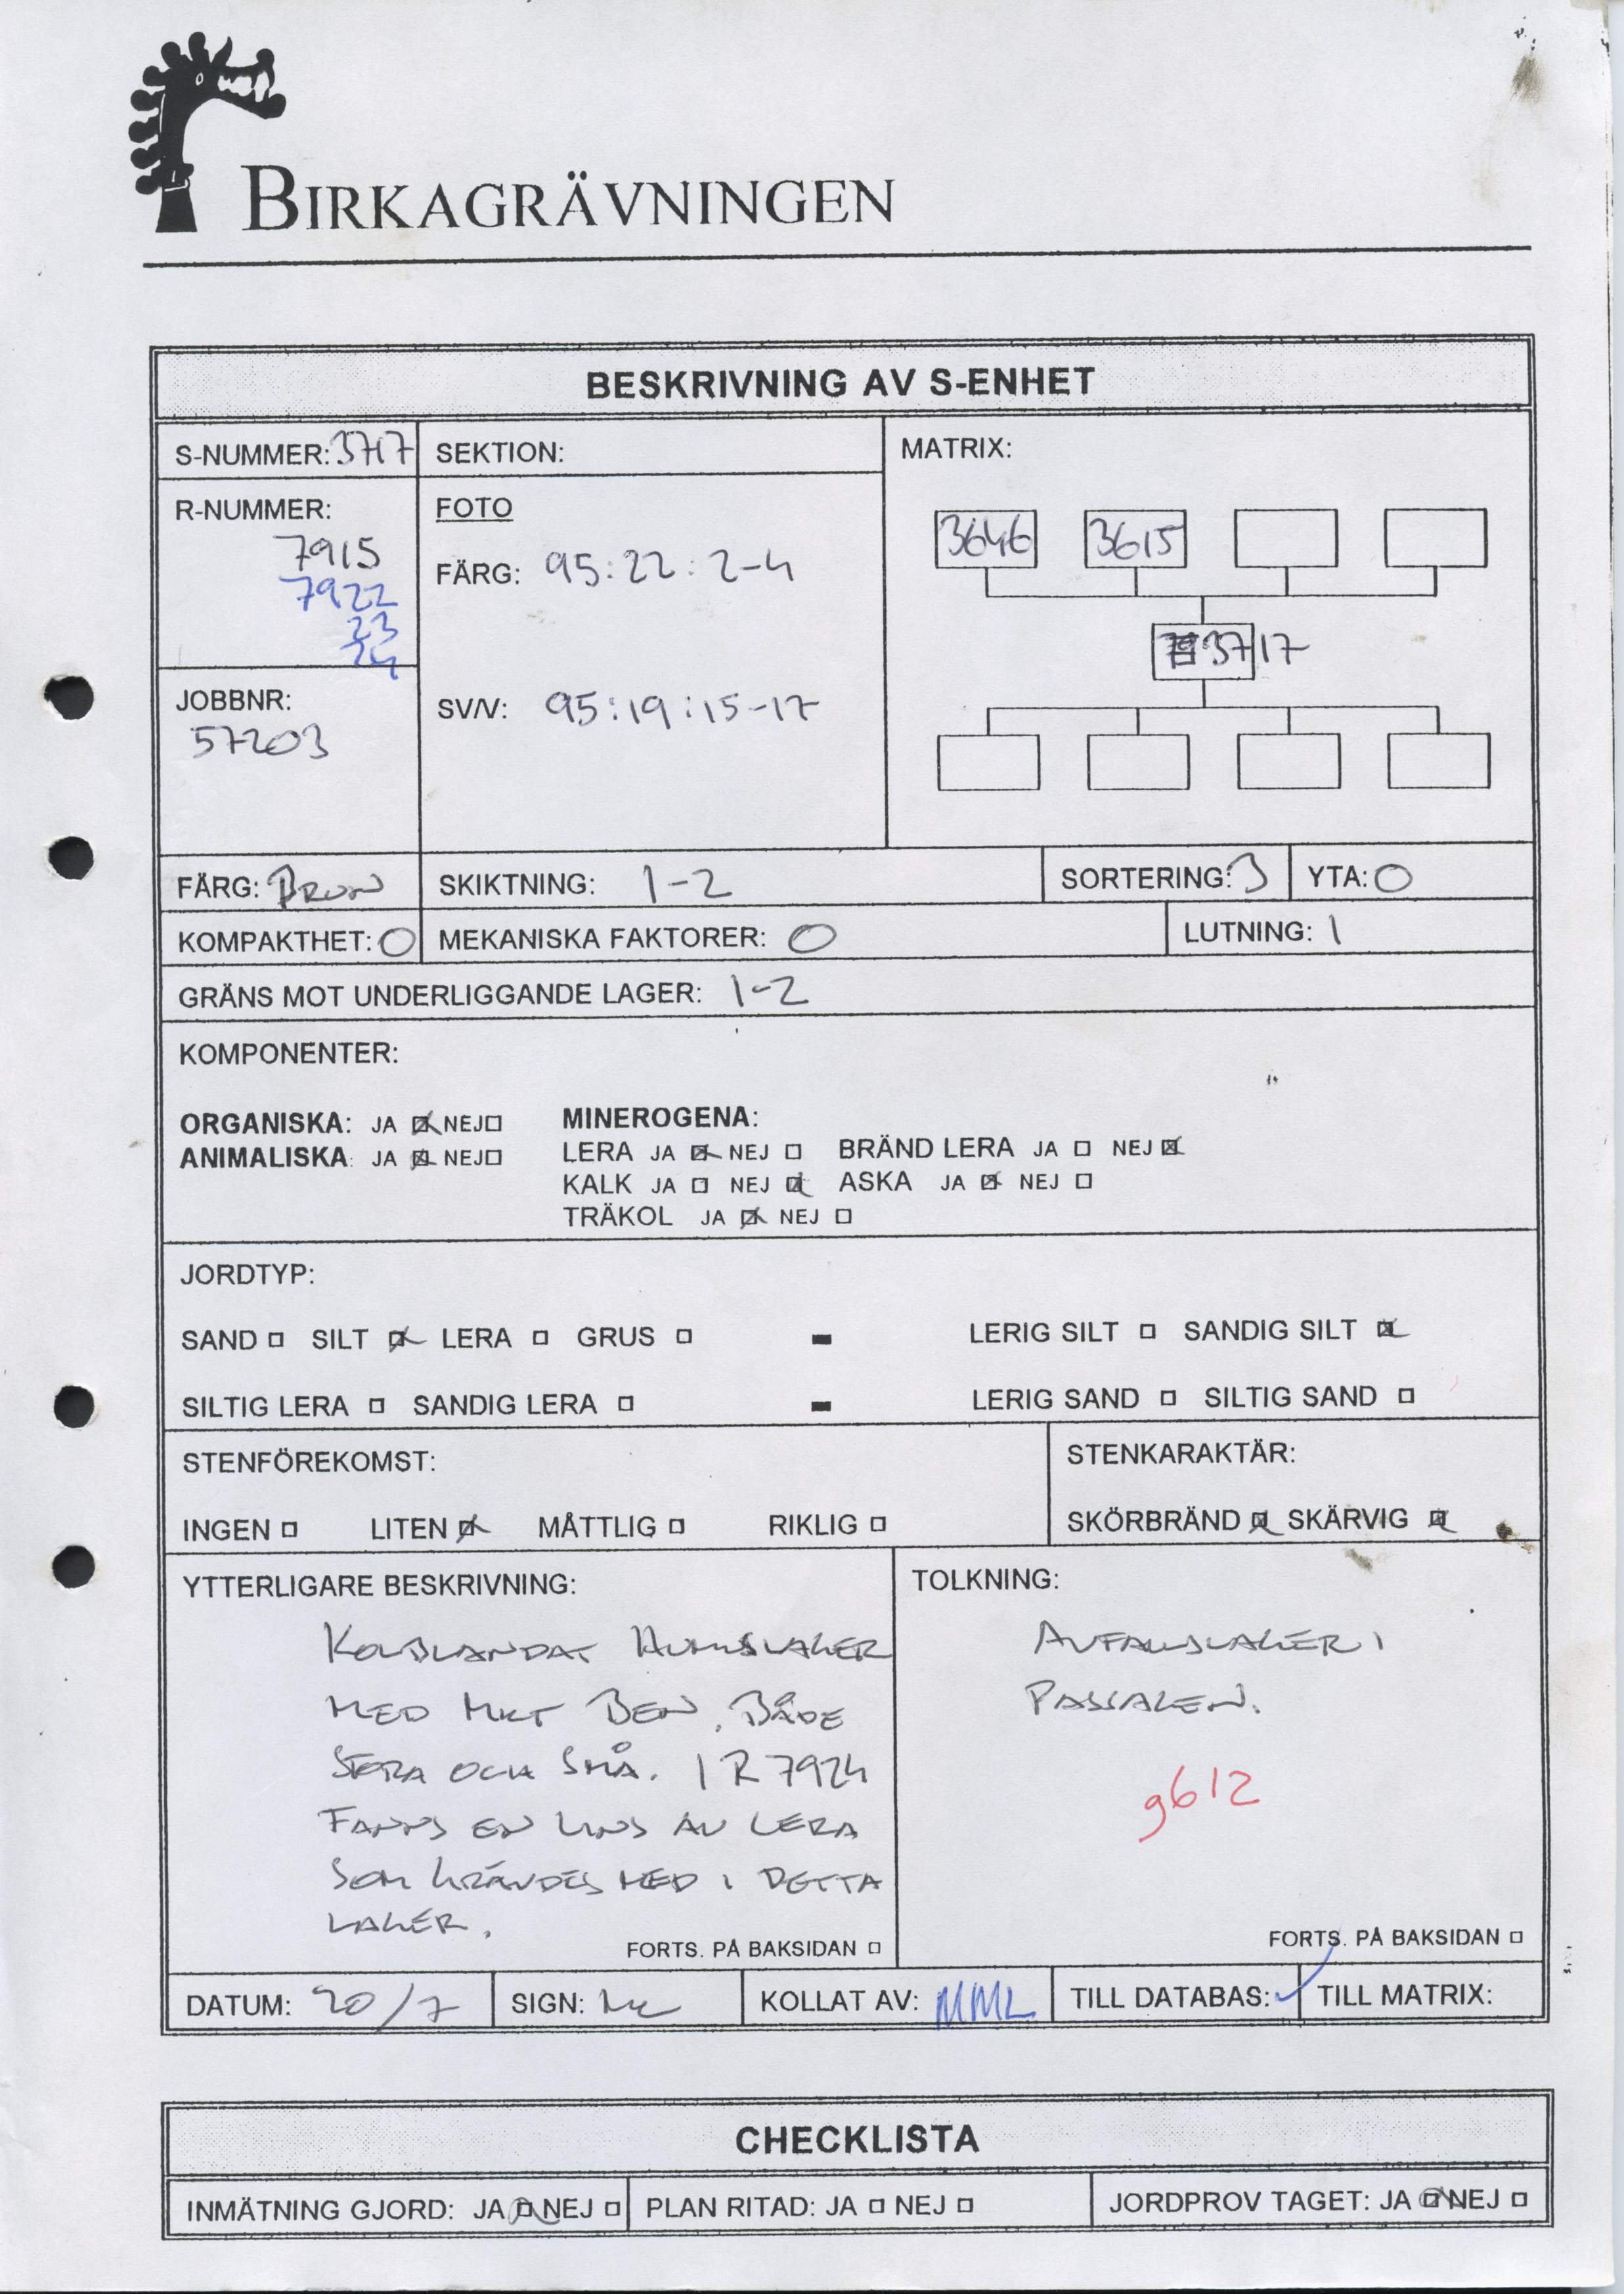 BIRKAGRÄVNINGEN
BESKRIVNING AV S-ENHET
S-NUMMER: 3717
SEKTION:
MATRIX:
R-NUMMER:
7915
7922
23
24
FOTO
FÄRG: 95:22:2-4
SV/V: 95:19:15-17
3646 3615
3717
JOBBNR:
57203
FÄRG: BRUN
SKIKTNING: 1-2
SORTERING: 3
YTA: 0
KOMPAKTHET: 0
MEKANISKA FAKTORER: 0
LUTNING: 1
GRÄNS MOT UNDERLIGGANDE LAGER: 1-2
KOMPONENTER:
ORGANISKA: JA ☒ NEJ ☐
ANIMALISKA: JA ☒ NEJ ☐
MINEROGENA:
LERA JA ☒ NEJ ☐ BRÄND LERA JA ☐ NEJ ☒
KALK JA ☐ NEJ ☒ ASKA JA ☒ NEJ ☐
TRÄKOL JA ☒ NEJ ☐
JORDTYP:
SAND ☐ SILT ☒ LERA ☐ GRUS ☐ - LERIG SILT ☐ SANDIG SILT ☒
SILTIG LERA ☐ SANDIG LERA ☐ - LERIG SAND ☐ SILTIG SAND ☐
STENFÖREKOMST:
INGEN ☐ LITEN ☒ MÅTTLIG ☐ RIKLIG ☐
STENKARAKTÄR:
SKÖRBRÄND ☒ SKÄRVIG ☒
YTTERLIGARE BESKRIVNING:
KOLBLANDAT HUMUSLAGER
MED MKT BEN, BÅDE
STORA OCH SMÅ. I R 7924
FANNS EN LINS AV LERA
SOM GRÄVDES MED I DETTA
LAGER.
FORTS. PÅ BAKSIDAN ☐
TOLKNING:
AVFALLSLAGER I
PASSAGEN.
g612
FORTS. PÅ BAKSIDAN ☐
DATUM: 20/7
SIGN:
KOLLAT AV: MML
TILL DATABAS: ✓
TILL MATRIX:
CHECKLISTA
INMÄTNING GJORD: JA ☒ NEJ ☐
PLAN RITAD: JA ☐ NEJ ☐
JORDPROV TAGET: JA ☒ NEJ ☐